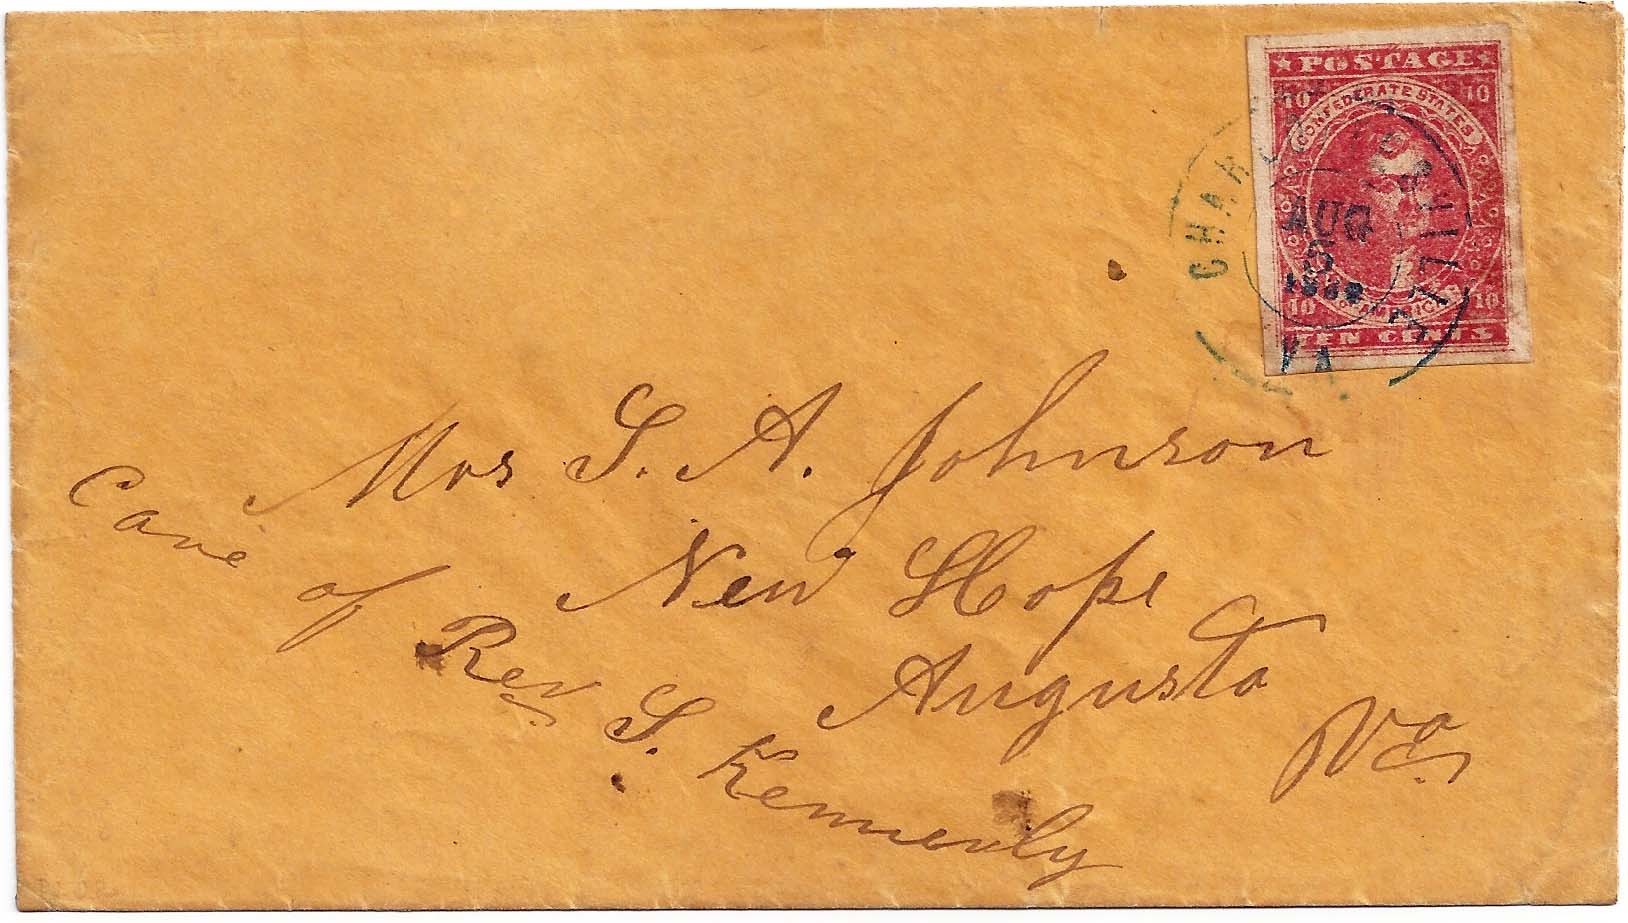 ★ POSTAGE ★
10 10
CONFEDERATE STATES
OF AMERICA
10 10
TEN CENTS
CHARLOTTESVILLE
AUG
5
VA.
Mrs S. A. Johnson
New Hope
Augusta
Va
Care
of
Rev
S. Kennerly